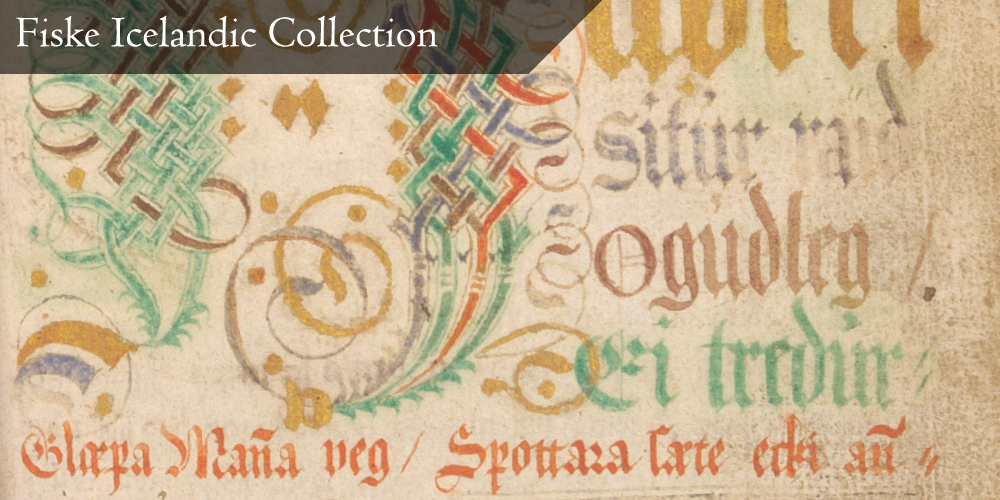 Fiske Icelandic Collection
situr
Ogudleg /
Ei tredur
Glæpa Maña veg / Spottara sæte ecki añ